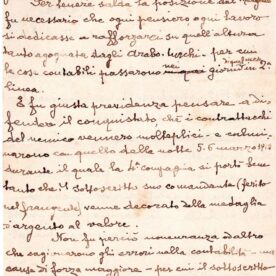 Per tenere salda la posizione dal
fu necessario che ogni pensiero ogni lavoro
si dedicasse a rafforzarci su quell'altura
tanto agognata dagli Arabo-turchi - per cui
le cose contabili passarono nei giorni in 2ª
linea.
E fu giusta previdenza pensare a di=
fendere il conquistato chè i contrattacchi
del nemico vennero molteplici - e culmi=
narono con quello della notte 5.6 marzo 1912
durante il quale la 4ª compagnia si portò
tanto che il sottoscritto suo comandante (ferito
nel frangente) venne decorato della medaglia
d'argento al valore.
Non fu perciò noncuranza d'altro
che cagionarono gli errori nella contabilità -
causa di forza maggiore - per cui il sottoscritto